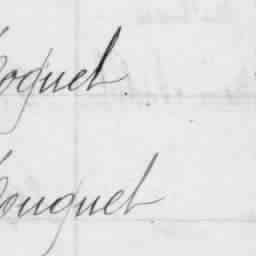 oquet
ouquet